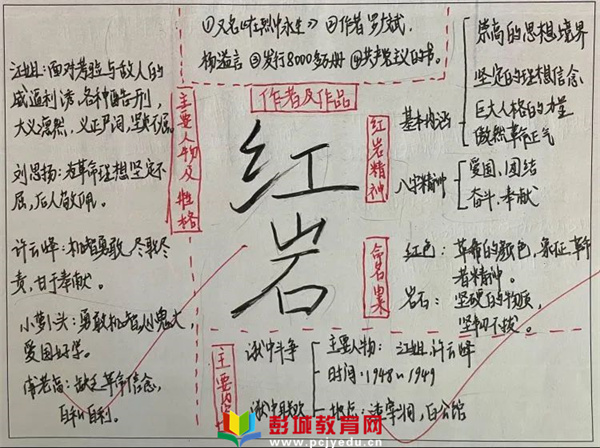 ①又名《在烈火中永生》 ②作者罗广斌
杨益言 ③发行8000多万册 ④共产主义的书。
作者及作品
红岩
主要人物及性格
江姐：面对考验与敌人的
威逼利诱，各种酷刑，
大义凛然，义正严词，坚贞不屈。
刘思扬：为革命理想坚定不
屈，后人敬佩。
许云峰：机智勇敢，尽职尽
责，甘于奉献。
小萝卜头：勇敢机智，人小鬼大，
爱国好学。
甫志高：缺乏革命信念，
自私自利。
红岩精神
基本内涵
崇高的思想境界
坚定的理想信念
巨大人格的力量
浩然革命正气
八字精神
爱国、团结
奋斗、奉献
命名由来
红色：革命的颜色，象征革命
者精神。
岩石：坚硬的物质，
坚韧不拔。
主要内容
狱中斗争
主要人物：江姐、许云峰
时间：1948~1949
地点：渣宰洞、白公馆
彭城教育网
www.pcjyedu.cn